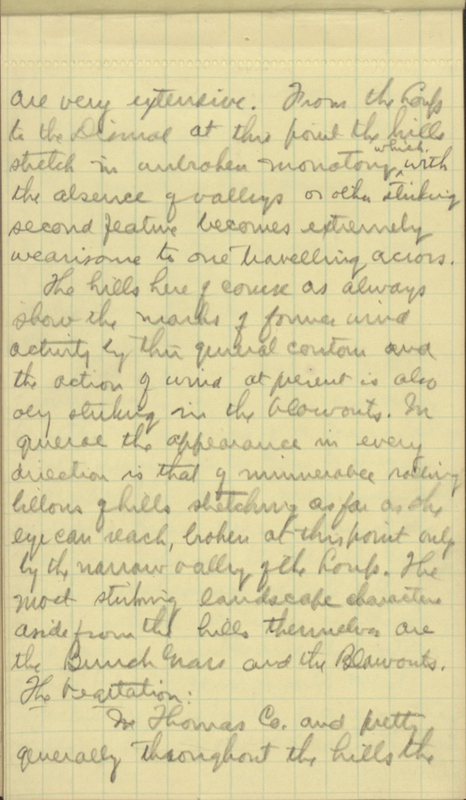 are very extensive. From the Loup
to the Dismal at this point the hills
stretch in unbroken monotony, which with
the absence of valleys or other striking
second feature becomes extremely
wearisome to one travelling across.
The hills here of course as always
show the marks of former wind
activity by their general contour and
the action of wind at present is also
very striking in the blowouts. In
general the appearance in every
direction is that of innumerable rolling
billows of hills stretching as far as the
eye can reach, broken at this point only
by the narrow valley of the Loup. The
most striking landscape characters
aside from the hills themselves are
the Bunch Grass and the Blowouts.
The Vegetation:
In Thomas Co. and pretty
generally throughout the hills the